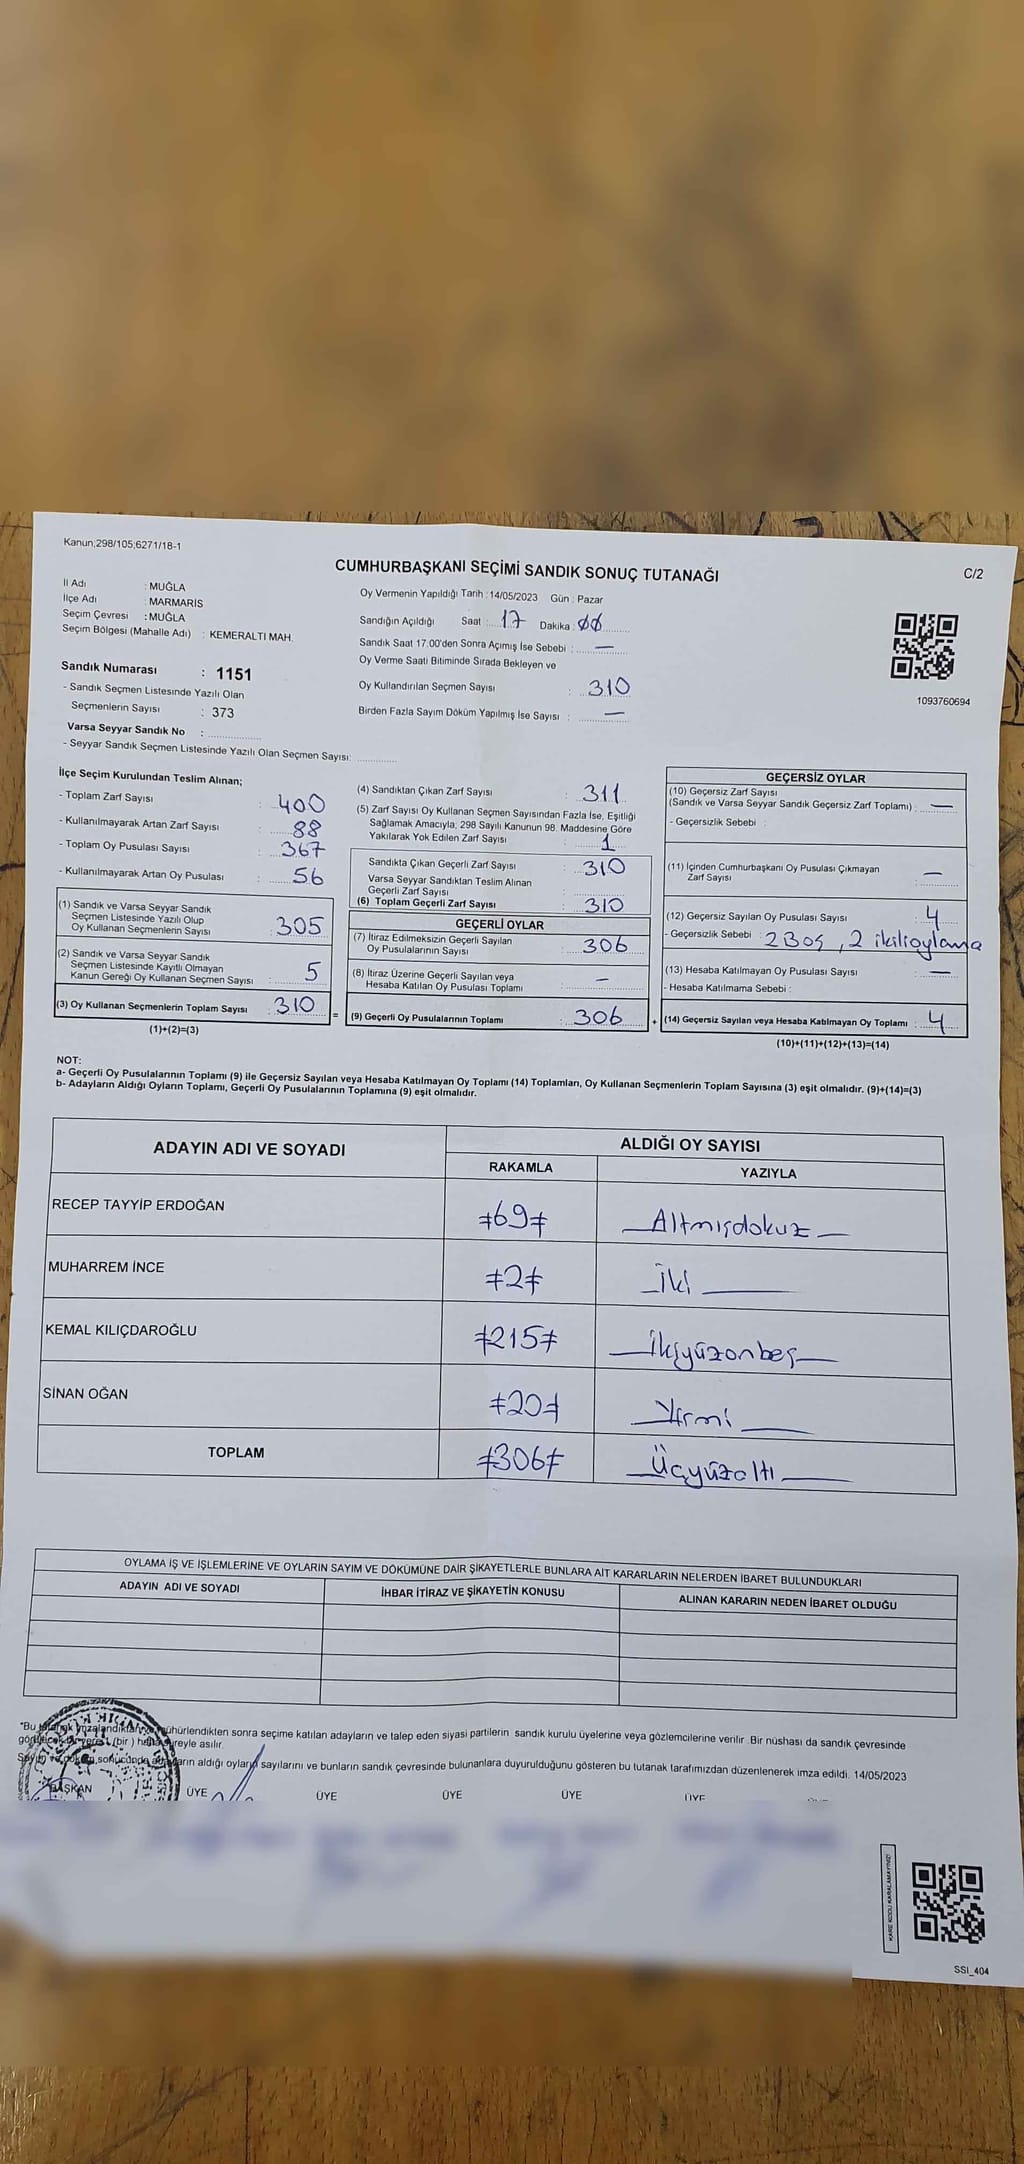 Kanun;298/105;6271/18-1
CUMHURBAŞKANI SEÇİMİ SANDIK SONUÇ TUTANAĞI
C/2
İl Adı : MUĞLA
İlçe Adı : MARMARİS
Seçim Çevresi : MUĞLA
Seçim Bölgesi (Mahalle Adı) : KEMERALTI MAH.
Sandık Numarası : 1151
- Sandık Seçmen Listesinde Yazılı Olan
Seçmenlerin Sayısı : 373
Varsa Seyyar Sandık No :
- Seyyar Sandık Seçmen Listesinde Yazılı Olan Seçmen Sayısı:
Oy Vermenin Yapıldığı Tarih : 14/05/2023 Gün : Pazar
Sandığın Açıldığı Saat : 17 Dakika : 00
Sandık Saat 17.00'den Sonra Açımış İse Sebebi : —
Oy Verme Saati Bitiminde Sırada Bekleyen ve
Oy Kullandırılan Seçmen Sayısı : 310
Birden Fazla Sayım Döküm Yapılmış İse Sayısı : —
1093760694
İlçe Seçim Kurulundan Teslim Alınan;
- Toplam Zarf Sayısı : 400
- Kullanılmayarak Artan Zarf Sayısı : 88
- Toplam Oy Pusulası Sayısı : 367
- Kullanılmayarak Artan Oy Pusulası : 56
(1) Sandık ve Varsa Seyyar Sandık
Seçmen Listesinde Yazılı Olup
Oy Kullanan Seçmenlerin Sayısı : 305
(2) Sandık ve Varsa Seyyar Sandık
Seçmen Listesinde Kayıtlı Olmayan
Kanun Gereği Oy Kullanan Seçmen Sayısı : 5
(3) Oy Kullanan Seçmenlerin Toplam Sayısı : 310
(1)+(2)=(3)
=
(4) Sandıktan Çıkan Zarf Sayısı : 311
(5) Zarf Sayısı Oy Kullanan Seçmen Sayısından Fazla İse, Eşitliği
Sağlamak Amacıyla, 298 Sayılı Kanunun 98. Maddesine Göre
Yakılarak Yok Edilen Zarf Sayısı : 1
Sandıkta Çıkan Geçerli Zarf Sayısı : 310
Varsa Seyyar Sandıktan Teslim Alınan
Geçerli Zarf Sayısı :
(6) Toplam Geçerli Zarf Sayısı : 310
GEÇERLİ OYLAR
(7) İtiraz Edilmeksizin Geçerli Sayılan
Oy Pusulalarının Sayısı : 306
(8) İtiraz Üzerine Geçerli Sayılan veya
Hesaba Katılan Oy Pusulası Toplamı : —
(9) Geçerli Oy Pusulalarının Toplamı : 306
+
GEÇERSİZ OYLAR
(10) Geçersiz Zarf Sayısı
(Sandık ve Varsa Seyyar Sandık Geçersiz Zarf Toplamı) : —
- Geçersizlik Sebebi :
(11) İçinden Cumhurbaşkanı Oy Pusulası Çıkmayan
Zarf Sayısı : —
(12) Geçersiz Sayılan Oy Pusulası Sayısı : 4
- Geçersizlik Sebebi : 2 Boş, 2 ikilioylama
(13) Hesaba Katılmayan Oy Pusulası Sayısı : —
- Hesaba Katılmama Sebebi :
(14) Geçersiz Sayılan veya Hesaba Katılmayan Oy Toplamı : 4
(10)+(11)+(12)+(13)=(14)
NOT:
a- Geçerli Oy Pusulalarının Toplamı (9) ile Geçersiz Sayılan veya Hesaba Katılmayan Oy Toplamı (14) Toplamları, Oy Kullanan Seçmenlerin Toplam Sayısına (3) eşit olmalıdır. (9)+(14)=(3)
b- Adayların Aldığı Oyların Toplamı, Geçerli Oy Pusulalarının Toplamına (9) eşit olmalıdır.
ADAYIN ADI VE SOYADI
ALDIĞI OY SAYISI
RAKAMLA YAZIYLA
RECEP TAYYİP ERDOĞAN ≠69≠ Altmışdokuz
MUHARREM İNCE ≠2≠ İki
KEMAL KILIÇDAROĞLU ≠215≠ İkiyüzonbeş
SİNAN OĞAN ≠20≠ Yirmi
TOPLAM ≠306≠ Üçyüzaltı
OYLAMA İŞ VE İŞLEMLERİNE VE OYLARIN SAYIM VE DÖKÜMÜNE DAİR ŞİKAYETLERLE BUNLARA AİT KARARLARIN NELERDEN İBARET BULUNDUKLARI
ADAYIN ADI VE SOYADI İHBAR İTİRAZ VE ŞİKAYETİN KONUSU ALINAN KARARIN NEDEN İBARET OLDUĞU
"Bu tutanak imzalandıktan ve mühürlendikten sonra seçime katılan adayların ve talep eden siyasi partilerin sandık kurulu üyelerine veya gözlemcilerine verilir .Bir nüshası da sandık çevresinde
görülecek bir yere 1 (bir ) hafta süreyle asılır.
Sayım ve döküm sonucunda adayların aldığı oyların sayılarını ve bunların sandık çevresinde bulunanlara duyurulduğunu gösteren bu tutanak tarafımızdan düzenlenerek imza edildi. 14/05/2023
BAŞKAN ÜYE ÜYE ÜYE ÜYE ÜYE
KARE KODU KARALAMAYINIZ!
SSI_404